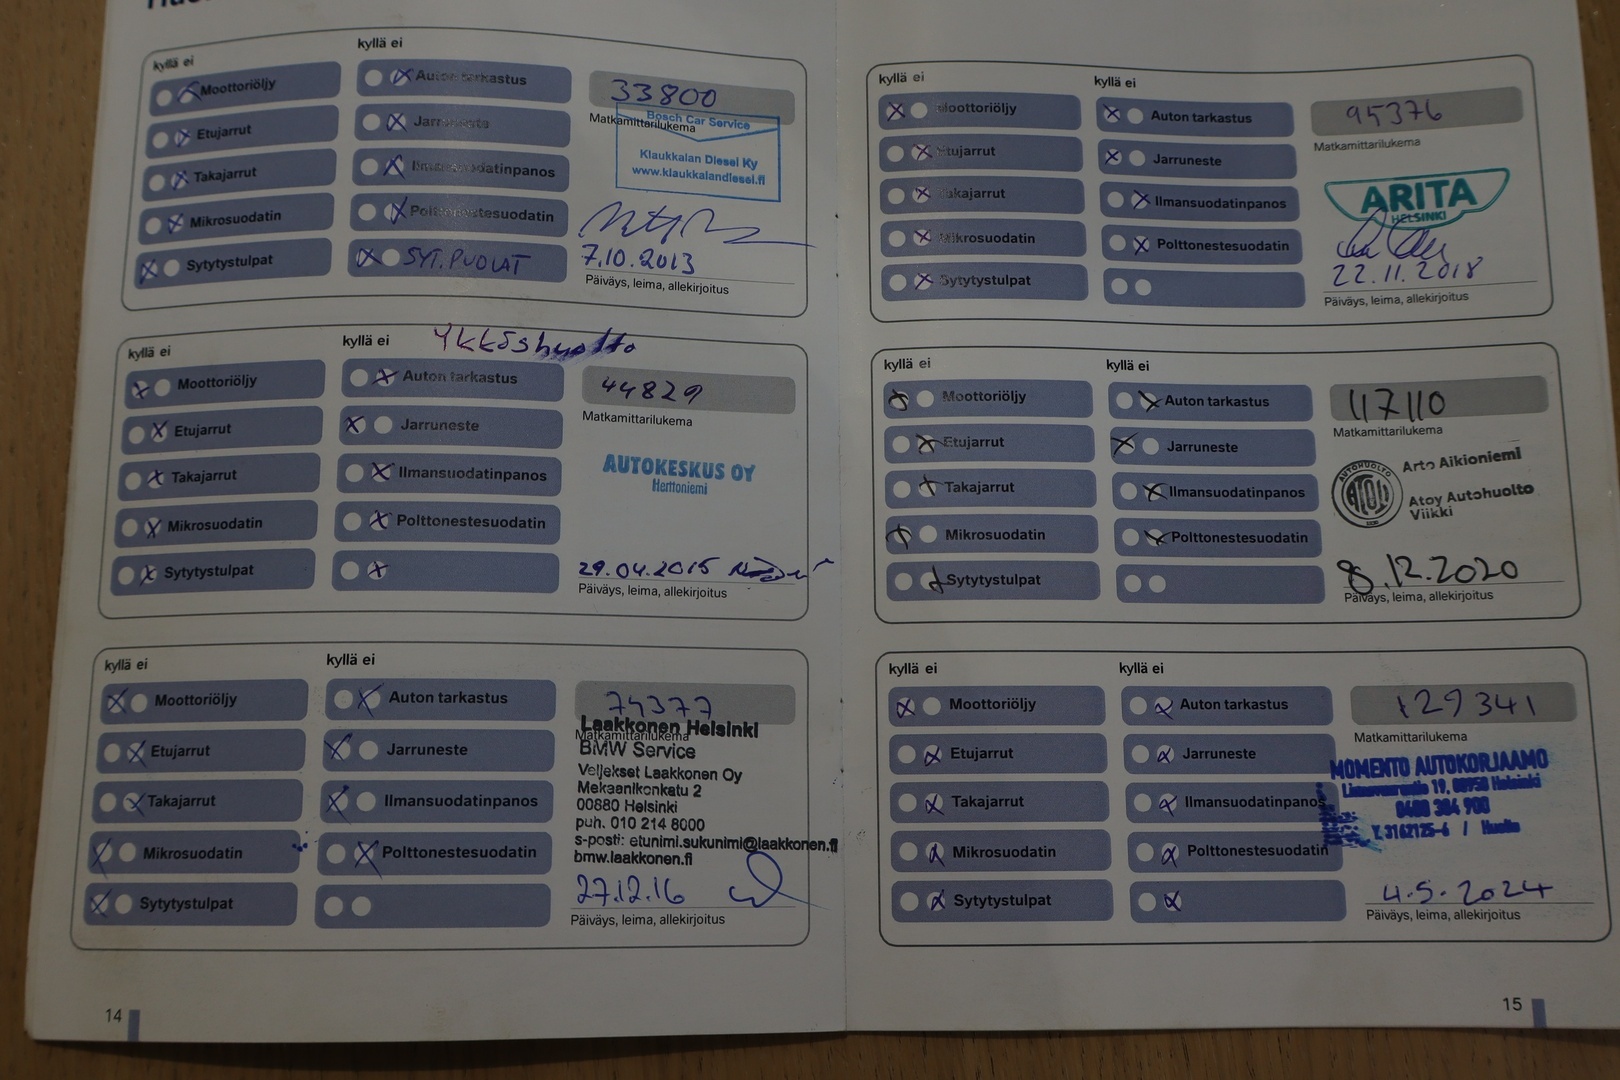 kyllä ei
kyllä ei
Moottoriöljy
Auton tarkastus
33800
Etujarrut
Jarruneste
Matkamittarilukema
Bosch Car Service
Takajarrut
Ilmansuodatinpanos
Klaukkalan Diesel Ky
www.klaukkalandiesel.fi
Mikrosuodatin
Polttonestesuodatin
Sytytystulpat
SYT. PUOLAT
7.10.2013
Päiväys, leima, allekirjoitus
kyllä ei
kyllä ei
Ykköshuolto
Moottoriöljy
Auton tarkastus
44829
Etujarrut
Jarruneste
Matkamittarilukema
Takajarrut
Ilmansuodatinpanos
AUTOKESKUS OY
Herttoniemi
Mikrosuodatin
Polttonestesuodatin
Sytytystulpat
29.04.2015
Päiväys, leima, allekirjoitus
kyllä ei
kyllä ei
Moottoriöljy
Auton tarkastus
74377
Etujarrut
Jarruneste
Matkamittarilukema
Laakkonen Helsinki
BMW Service
Takajarrut
Ilmansuodatinpanos
Veljekset Laakkonen Oy
Mekaanikonkatu 2
00880 Helsinki
puh. 010 214 8000
Mikrosuodatin
Polttonestesuodatin
s-posti: etunimi.sukunimi@laakkonen.fi
bmw.laakkonen.fi
Sytytystulpat
27.12.16
Päiväys, leima, allekirjoitus
14
kyllä ei
kyllä ei
Moottoriöljy
Auton tarkastus
95376
Etujarrut
Jarruneste
Matkamittarilukema
Takajarrut
Ilmansuodatinpanos
ARITA
HELSINKI
Mikrosuodatin
Polttonestesuodatin
Sytytystulpat
22.11.2018
Päiväys, leima, allekirjoitus
kyllä ei
kyllä ei
Moottoriöljy
Auton tarkastus
117110
Etujarrut
Jarruneste
Matkamittarilukema
Takajarrut
Ilmansuodatinpanos
AUTOHUOLTO
ATOY
Arto Aikioniemi
Atoy Autohuolto
Viikki
Mikrosuodatin
Polttonestesuodatin
Sytytystulpat
8.12.2020
Päiväys, leima, allekirjoitus
kyllä ei
kyllä ei
Moottoriöljy
Auton tarkastus
129341
Etujarrut
Jarruneste
Matkamittarilukema
MOMENTO AUTOKORJAAMO
Takajarrut
Ilmansuodatinpanos
19, Helsinki
Y. 3162125-6 / Huolto
Mikrosuodatin
Polttonestesuodatin
Sytytystulpat
4.5.2024
Päiväys, leima, allekirjoitus
15